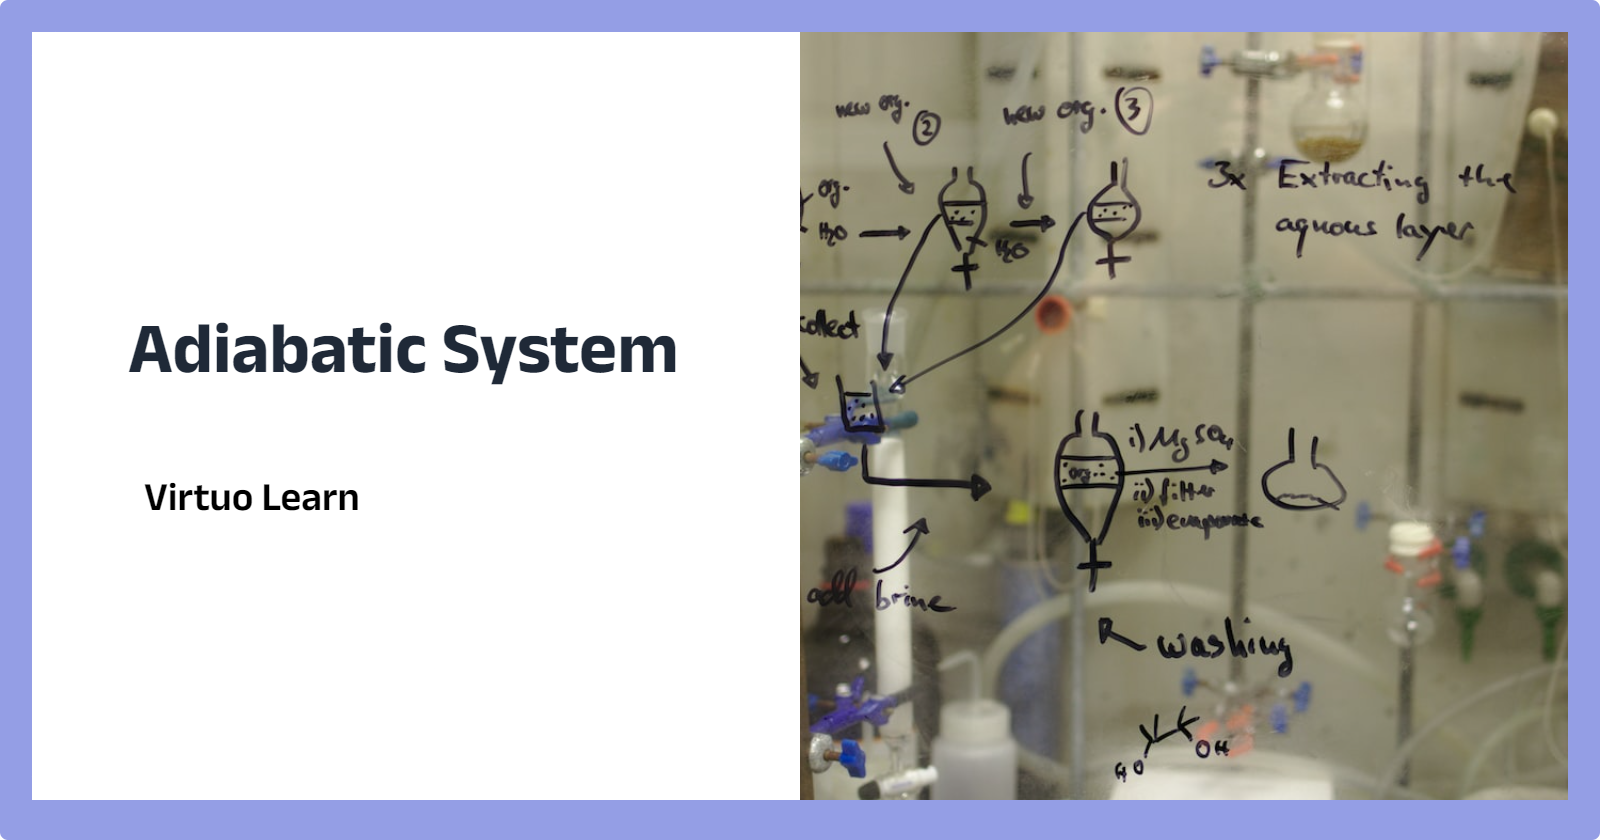 Adiabatic System
Virtuo Learn
new org. 2
new org. 3
org.
H2O
H2O
3x Extracting the
aquous layer
collect
org
i) MgSO4
ii) filter
iii) evaporate
add brine
washing
HO
OH